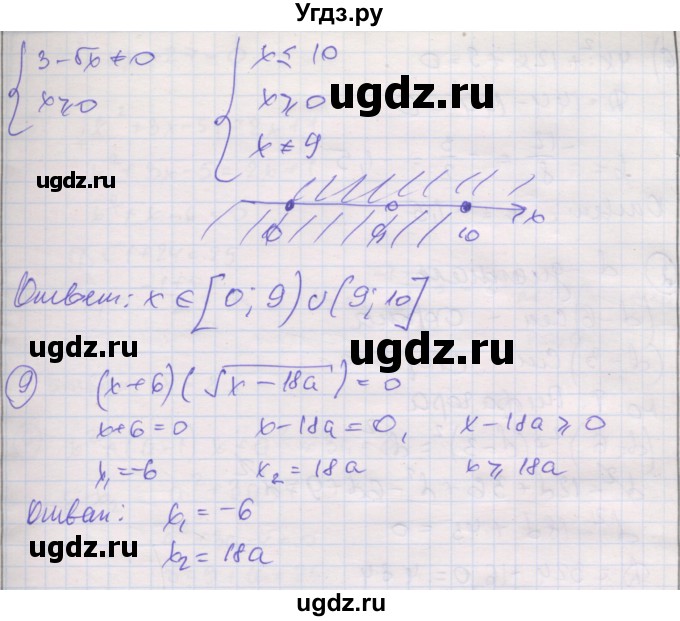 Угдз.ру
3 - √x ≠ 0
x ≥ 0
x ≤ 10
x ≥ 0
x ≠ 9
ugdz.ru
ugdz.ru
0 9 10 x
ugdz.ru
Ответ: x ∈ [0; 9) ∪ (9; 10]
ugdz.ru
ugdz.ru
9 (x+6)(√x - 18a) = 0
x+6 = 0 x - 18a = 0, x - 18a ≥ 0
x₁ = -6 x₂ = 18a x ≥ 18a
Ответ: x₁ = -6
x₂ = 18a
ugdz.ru
ugdz.ru
ugdz.ru